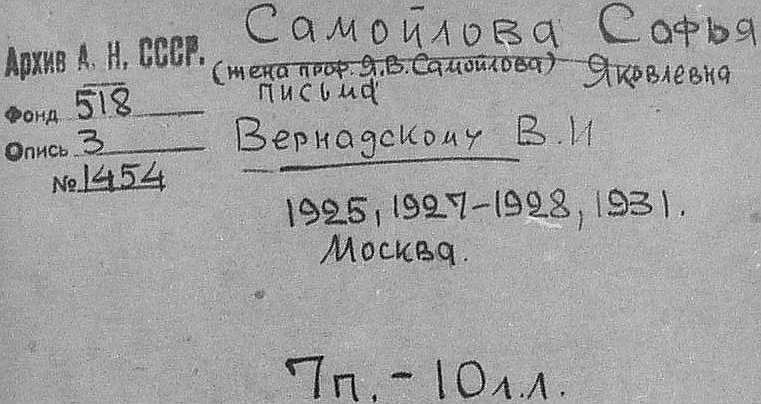 Самойлова Софья
Архив А. Н. СССР.
(жена проф. Я.В. Самойлова) Яковлевна
письма
Фонд 518
Вернадскому В.И
Опись 3
№ 1454
1925, 1927-1928, 1931.
Москва.
7п. - 10л.л.